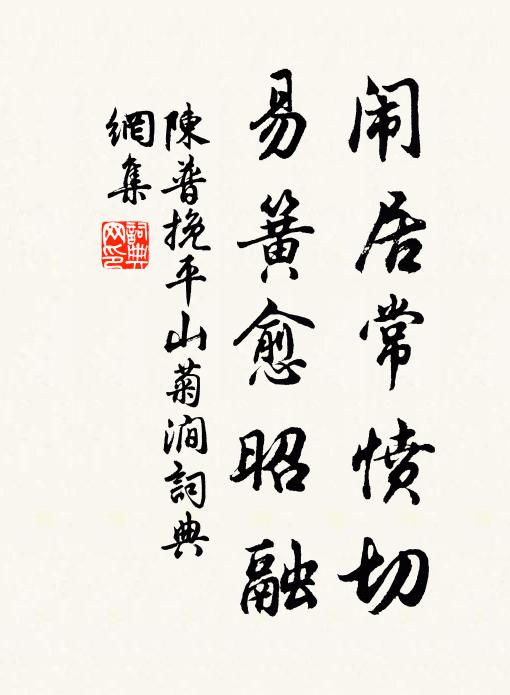 闹居常愤切
易簀愈昭融
陳普挽平山菊澗詞典
網集
詞典网印